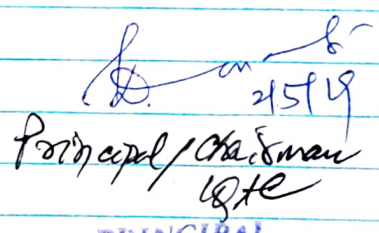 2/5/19
Principal/Chairman
IQAC
PRINCIPAL